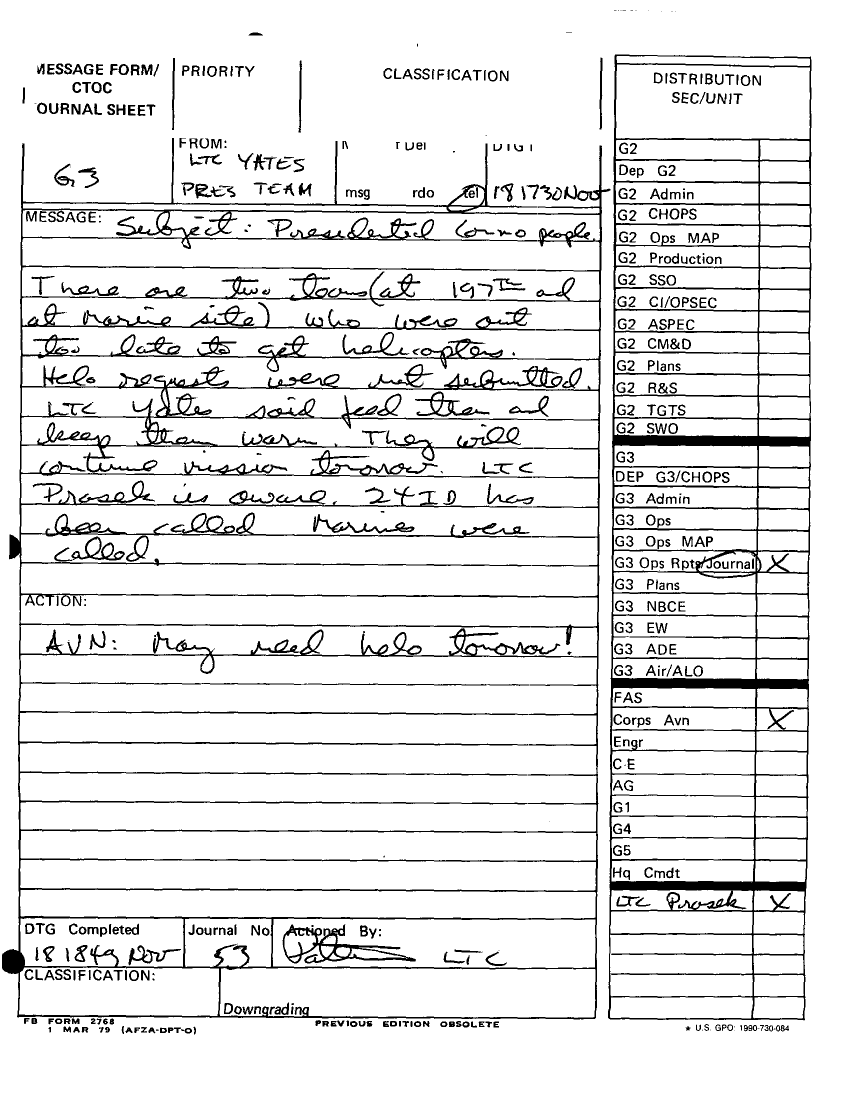 MESSAGE FORM/ PRIORITY CLASSIFICATION
CTOC
JOURNAL SHEET
G3
FROM:
LTC YATES
PRES TEAM
msg rdo tel
181730Nov
MESSAGE: Subject: Presidential Commo people.
There are two teams (at 197th and
at Marine site) who were out
too late to get helicopters.
Helo requests were not submitted.
LTC Yates said feed them and
keep them warm. They will
continue mission tomorrow. LTC
Prosek is aware. 24 ID has
been called Marines were
called.
ACTION:
AVN: May need helo tomorrow!
DTG Completed Journal No Actioned By:
181849 Nov 53 LTC
CLASSIFICATION:
Downgrading
FB FORM 2768
1 MAR 79 (AFZA-DPT-O)
PREVIOUS EDITION OBSOLETE
DISTRIBUTION
SEC/UNIT
G2
Dep G2
G2 Admin
G2 CHOPS
G2 Ops MAP
G2 Production
G2 SSO
G2 CI/OPSEC
G2 ASPEC
G2 CM&D
G2 Plans
G2 R&S
G2 TGTS
G2 SWO
G3
DEP G3/CHOPS
G3 Admin
G3 Ops
G3 Ops MAP
G3 Ops Rpts/Journal X
G3 Plans
G3 NBCE
G3 EW
G3 ADE
G3 Air/ALO
FAS
Corps Avn X
Engr
C-E
AG
G1
G4
G5
Hq Cmdt
LTC Prosek X
★ U.S. GPO: 1990-730-084